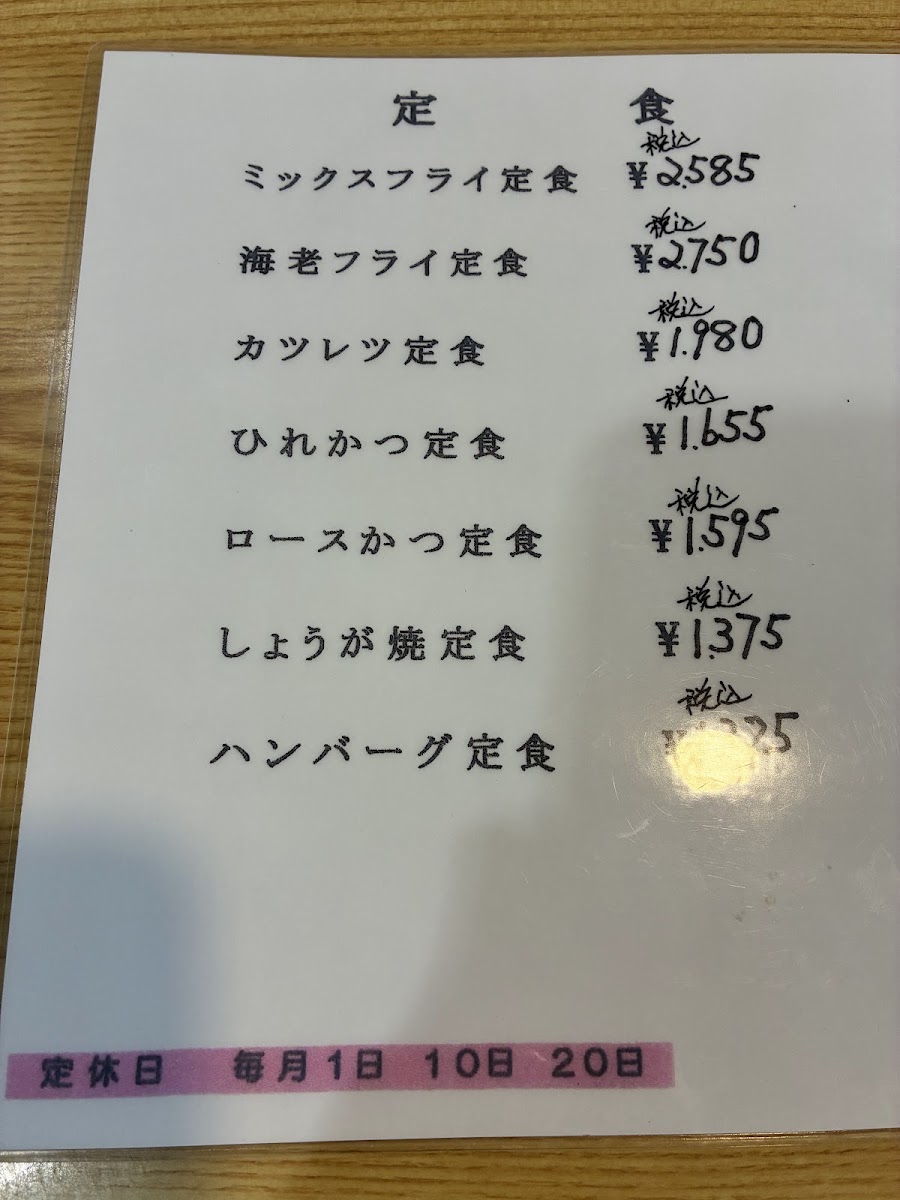 定 食
税込
ミックスフライ定食 ¥2.585
税込
海老フライ定食 ¥2.750
税込
カツレツ定食 ¥1.980
税込
ひれかつ定食 ¥1.655
税込
ロースかつ定食 ¥1.595
税込
しょうが焼定食 ¥1.375
税込
ハンバーグ定食
定休日 毎月1日 10日 20日